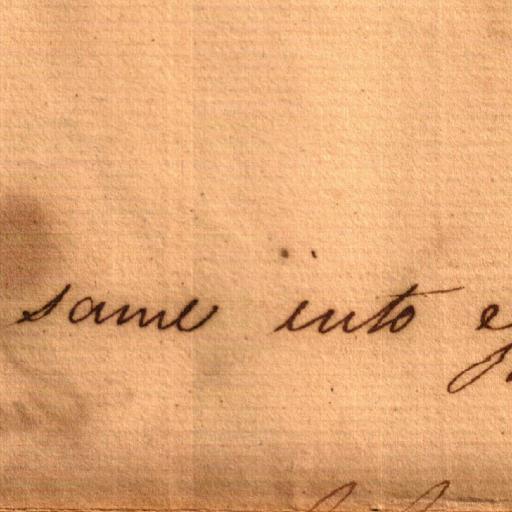 same into